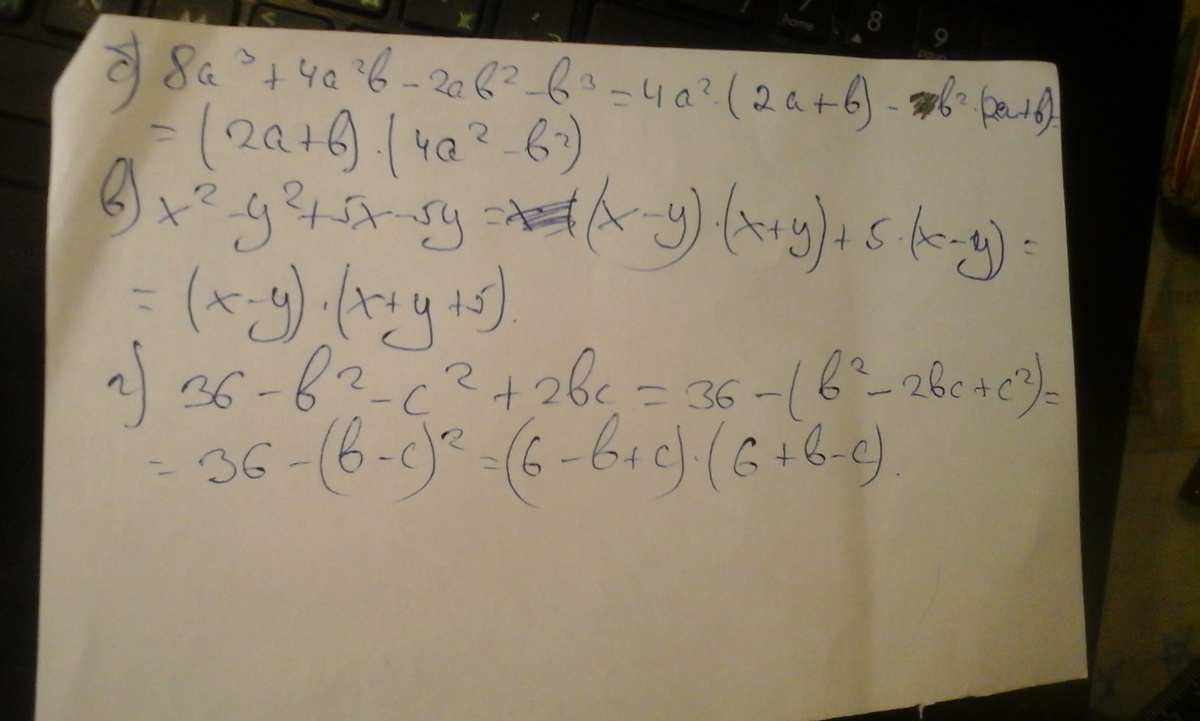 б) 8a³ + 4a²b – 2ab² – b³ = 4a² · (2a + b) – b² · (2a + b) =
= (2a + b) · (4a² – b²)
в) x² – y² + 5x – 5y = (x – y) · (x + y) + 5 · (x – y) =
= (x – y) · (x + y + 5).
г) 36 – b² – c² + 2bc = 36 – (b² – 2bc + c²) =
= 36 – (b – c)² = (6 – b + c) · (6 + b – c).
home
8
9